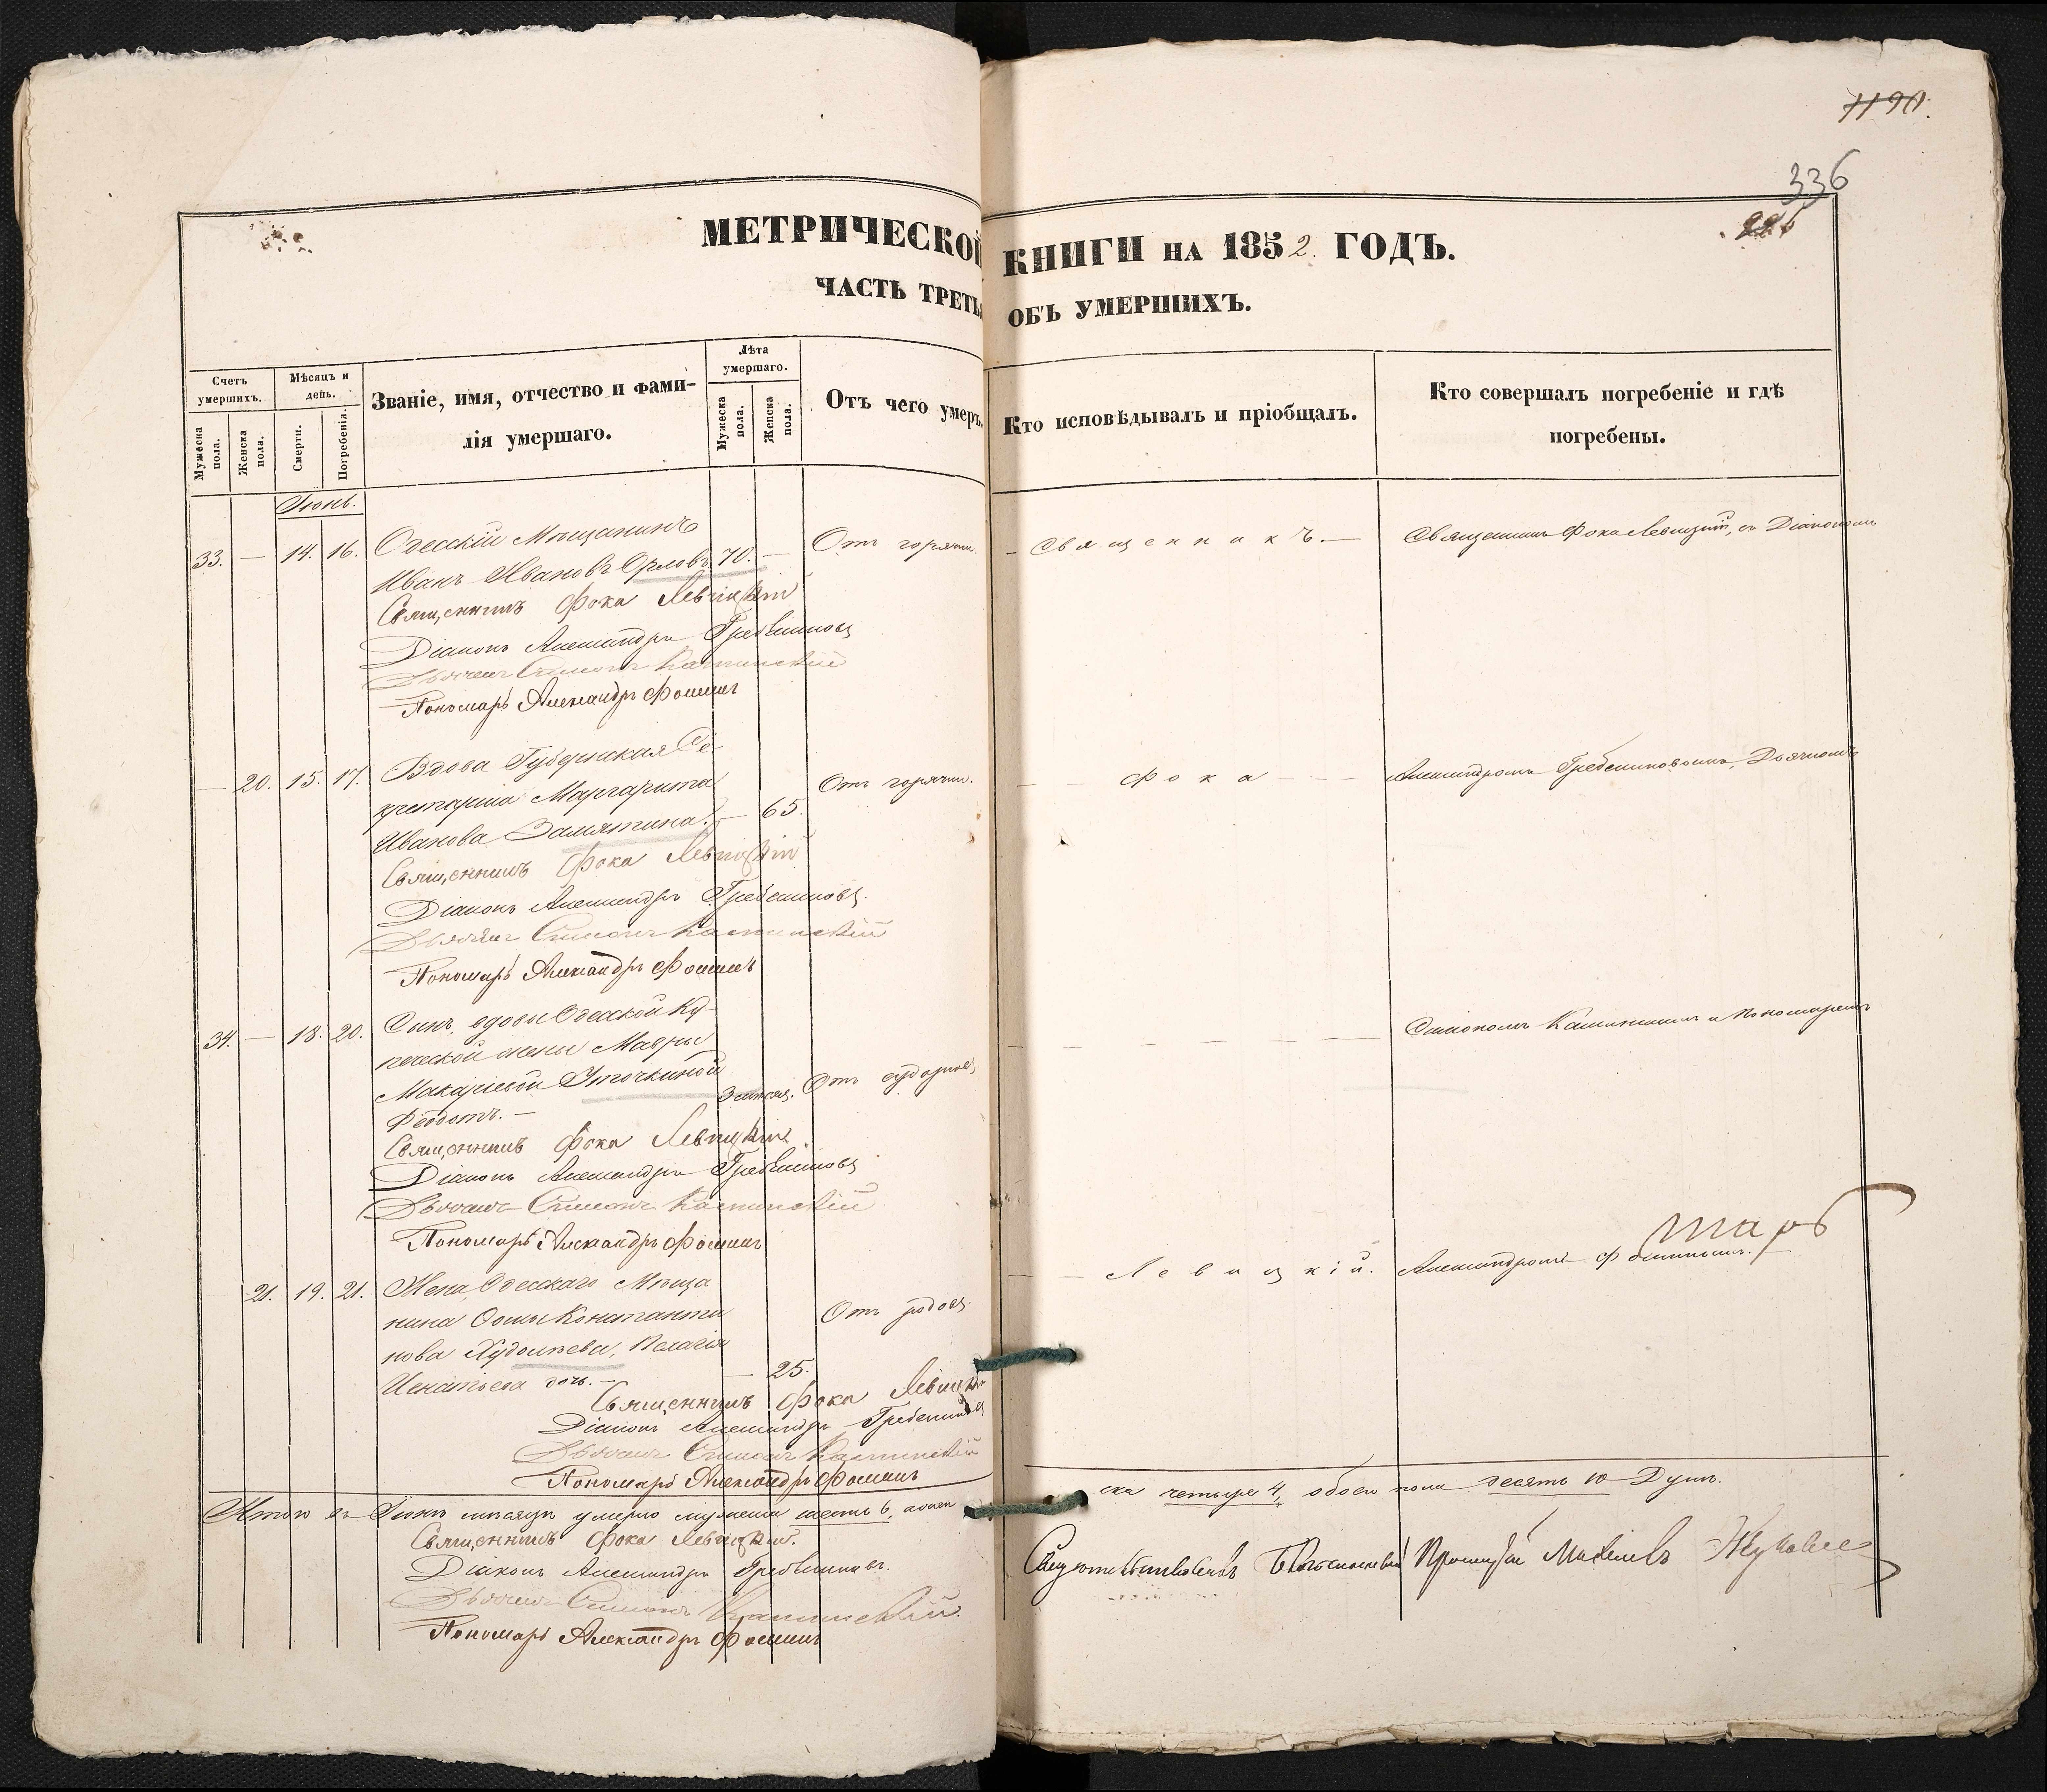 1190.
336
МЕТРИЧЕСКОЙ КНИГИ НА 1852. ГОДЪ.
ЧАСТЬ ТРЕТЬ ОБЪ УМЕРШИХЪ.
Счетъ умершихъ.
Мужеска пола.
Женска пола.
Мѣсяцъ и день.
Смерти.
Погребенія.
Званіе, имя, отчество и фами-
лія умершаго.
Лѣта умершаго.
Мужеска пола.
Женска пола.
Отъ чего умеръ.
Кто исповѣдывалъ и пріобщалъ.
Кто совершалъ погребеніе и гдѣ
погребены.
Іюнь.
33. — 14. 16. Одесскій Мѣщанинъ
Иванъ Ивановъ Орловъ 70. — Отъ горячк.
Священникъ Фока Левицкій
Діаконъ Александръ Гребенниковъ
Дьячекъ Симонъ Каминскій
Пономарь Александръ Фоминъ
— Священникъ. — Священникъ Фока Левицкій, съ Діакономъ
— 20. 15. 17. Вдова Губернская Се-
кретарша Маргарита
Иванова Замятина. — 65. Отъ горячк.
Священникъ Фока Левицкій
Діаконъ Александръ Гребенниковъ
Дьячекъ Симонъ Каминскій
Пономарь Александръ Фоминъ
— — Фока — — Александромъ Гребенниковымъ, Дьячкомъ
34. — 18. 20. Сынъ вдовы Одесской Ку-
печеской жены Мавры
Макаріевой Уточкиной
Феодотъ. — 3 мѣсяц. Отъ судорож.
Священникъ Фока Левицкій
Діаконъ Александръ Гребенниковъ
Дьячекъ Симонъ Каминскій
Пономарь Александръ Фоминъ
Симономъ Каминскимъ и Пономаремъ
21. 19. 21. Жена Одесскаго Мѣща
нина Фомы Константи
нова Худошева, Пелагія
Игнатьева дочь. — — 25. Отъ родовъ.
Священникъ Фока Левицкій
Діаконъ Александръ Гребенниковъ
Дьячекъ Симонъ Каминскій
Пономарь Александръ Фоминъ
— — Левицкій. Александромъ Фоминымъ.
Итого въ Іюнѣ мѣсяцѣ умерло мужеска шесть 6, женска четыре 4, обоего пола десять 10 Душъ.
Священникъ Фока Левицкій.
Діаконъ Александръ Гребенниковъ.
Дьячекъ Симонъ Каминскій.
Пономарь Александръ Фоминъ
Свидѣтельствовалъ Протоіерей Михаилъ